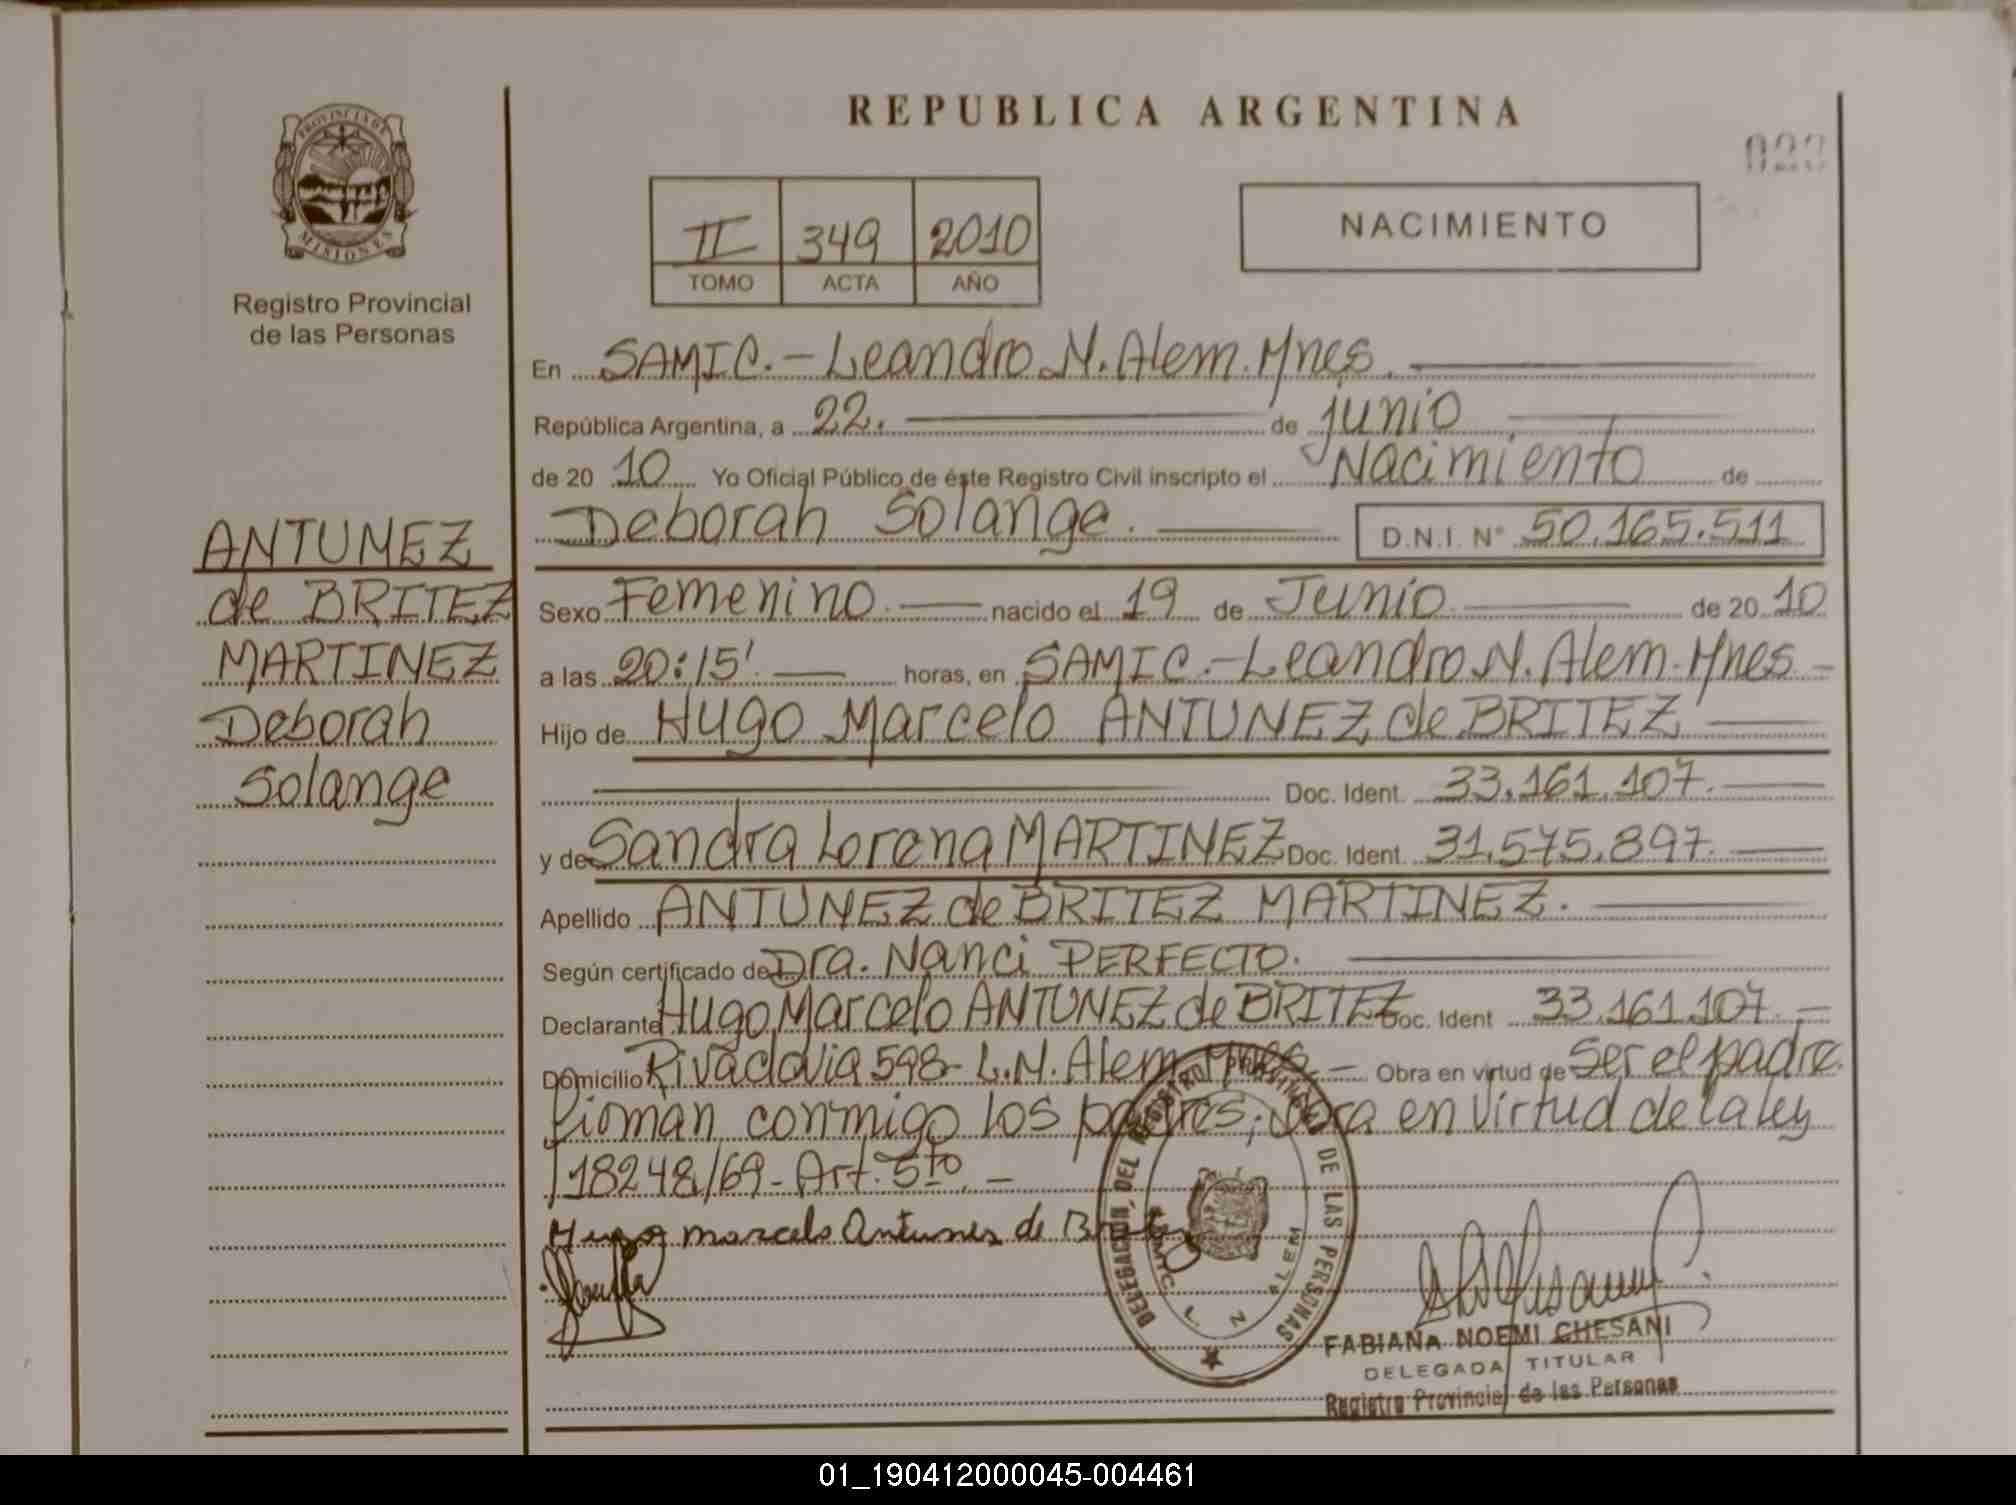 REPUBLICA ARGENTINA
PROVINCIA DE
MISIONES
Registro Provincial
de las Personas
II 349 2010
TOMO ACTA AÑO
NACIMIENTO
En SAMIC.-Leandro N. Alem. Mnes.
República Argentina, a 22. de junio
de 20 10 Yo Oficial Público de éste Registro Civil inscripto el Nacimiento de
Deborah Solange. D.N.I. Nº 50.165.511
ANTUNEZ
de BRITEZ
MARTINEZ
Deborah
Solange
Sexo Femenino. nacido el 19 de Junio de 20 10
a las 20:15'. horas, en SAMIC.-Leandro N. Alem-Mnes-
Hijo de Hugo Marcelo ANTUNEZ de BRITEZ
Doc. Ident. 33.161.107.
y de Sandra Lorena MARTINEZ Doc. Ident. 31.575.897.
Apellido ANTUNEZ de BRITEZ MARTINEZ.
Según certificado de Dra. Nanci PERFECTO.
Declarante Hugo Marcelo ANTUNEZ de BRITEZ Doc. Ident 33.161.107.-
Domicilio Rivadavia 598- L.N. Alem Mnes.- Obra en virtud de Ser el padre
Firman conmigo los padres; obra en Virtud de la ley
18248/69-Art. 5to.-
Hugo Marcelo Antunez de Britez
DELEGACION DEL REGISTRO PROVINCIAL DE LAS PERSONAS
SAMIC L. N. ALEM
FABIANA NOEMI CHESANI
DELEGADA TITULAR
Registro Provincial de las Personas
01_190412000045-004461